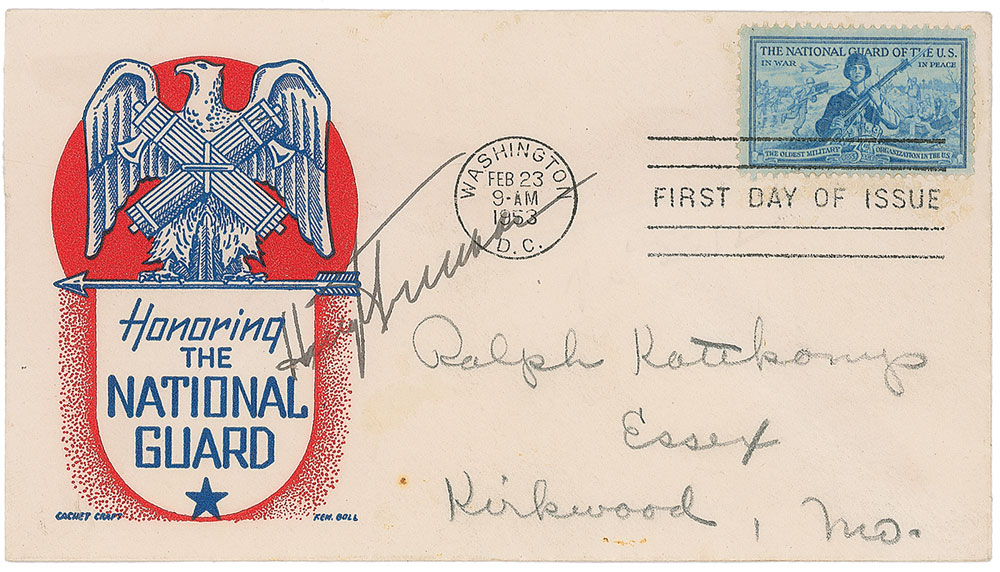 THE NATIONAL GUARD OF THE U.S.
IN WAR IN PEACE
THE OLDEST MILITARY ORGANIZATION IN THE U.S.
WASHINGTON
FEB 23
9-AM
1953
D.C.
FIRST DAY OF ISSUE
Honoring
THE
NATIONAL
GUARD
CACHET CRAFT KEN. BOLL
Harry Truman
Ralph
Essex
Kirkwood, Mo.